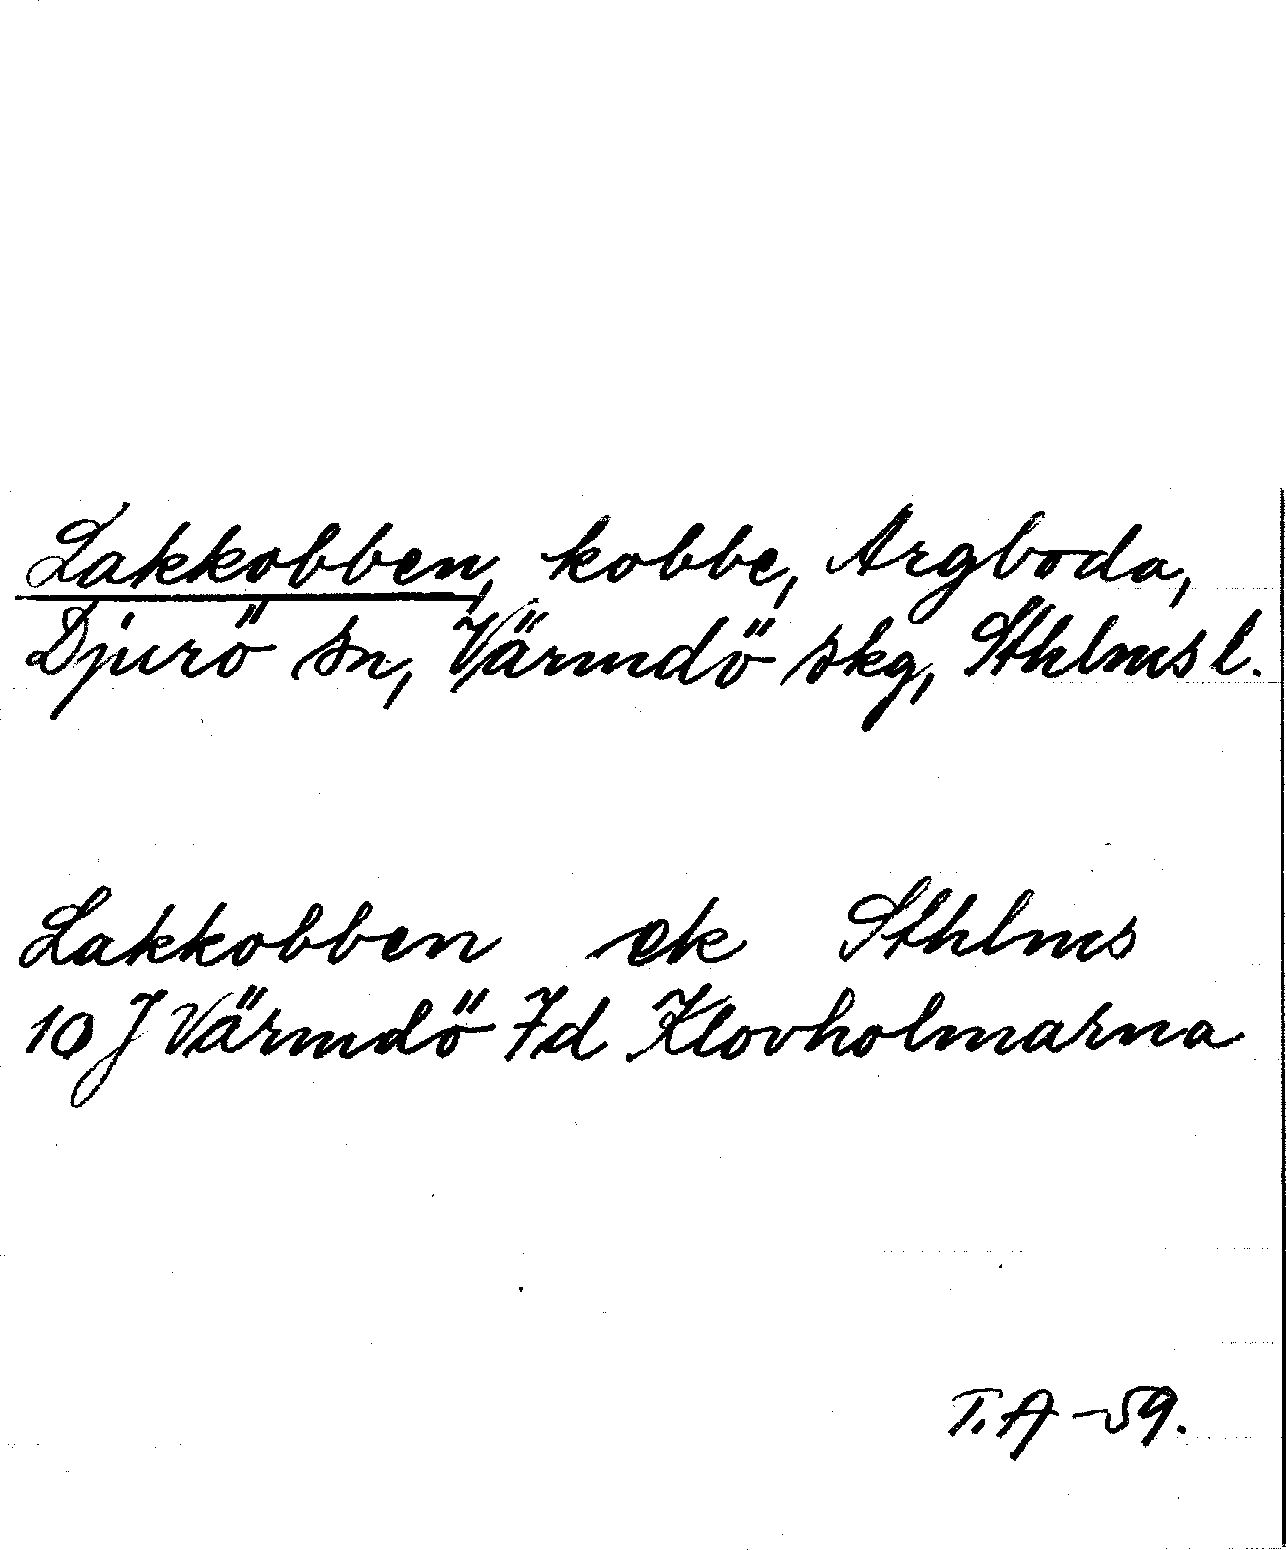 Lakkobben, kobbe, Argboda,
Djurö sn, Värmdö skg, Sthlms l.
Lakkobben ek Sthlms
10 J Värmdö 7d Klovholmarna
T.A -59.